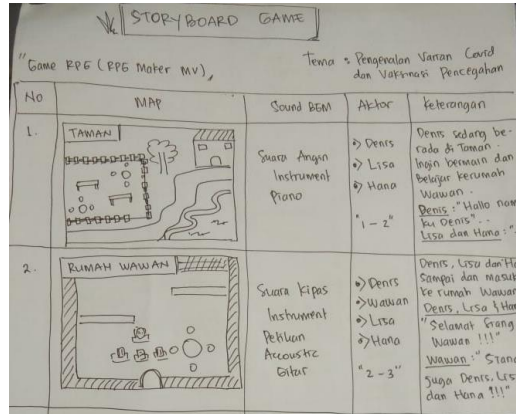 STORYBOARD GAME
"Game RPG (RPG Maker MV)"
Tema : Pengenalan Varian Covid
dan Vaksinasi Pencegahan
No
MAP
Sound BGM
Aktor
Keterangan
1.
TAMAN
Suara Angin
Instrument
Piano
Denis
Lisa
Hana
"1-2"
Denis sedang be-
rada di Taman.
Ingin bermain dan
Belajar kerumah
Wawan.
Denis : "Hallo nam
ku Denis"..
Lisa dan Hana : "
2.
RUMAH WAWAN
Suara Kipas
Instrument
Petikan
Accoustic
Gitar
Denis
Wawan
Lisa
Hana
"2-3"
Denis, Lisa dan Ha
Sampai dan masuk
ke rumah Wawan
Denis, Lisa & Han
"Selamat Siang
Wawan !!!"
Wawan : "Siang
Juga Denis, Lis
dan Hana !!!"